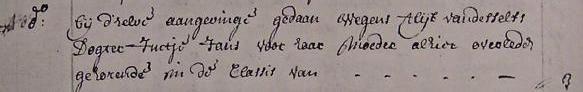 do: bij d'selve aangevinge gedaan wegens Alijt vandesselfs
Dogter Jutje Jans voor haar Moeder alhier overleden
gehorende in de Classis van - - - - - - 3